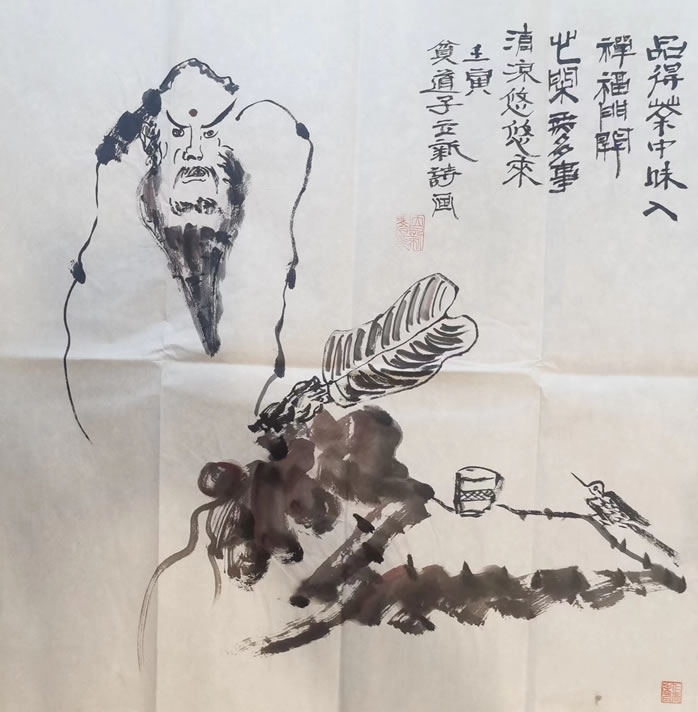 品得茶中味入
禪福門開
閑无多事
清凉悠悠來
壬寅
貧道子立新詩画